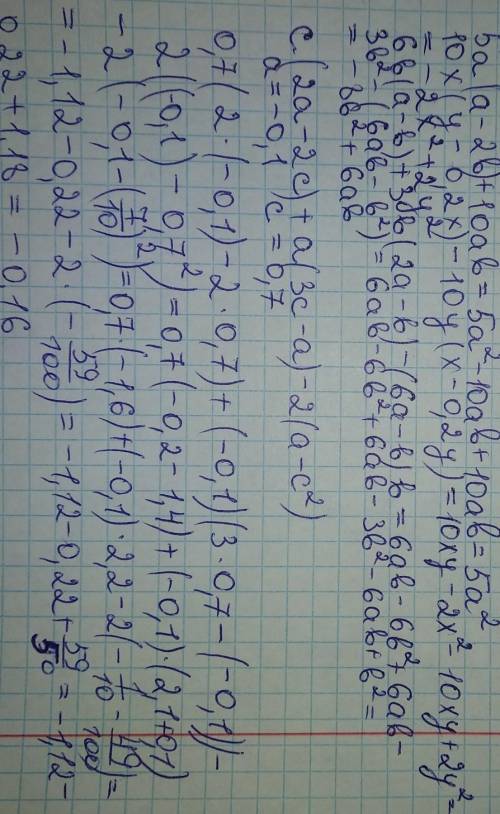 5a(a-2b)+10ab=5a²-10ab+10ab=5a²
10x(y-0,2x)-10y(x-0,2y)=10xy-2x²-10xy+2y²=
=-2x²+2y²
6b(a-b)+3b(2a-b)-(6a-b)b=6ab-6b²+6ab-
3b²-(6ab-b²)=6ab-6b²+6ab-3b²-6ab+b²=
=-8b²+6ab
c(2a-2c)+a(3c-a)-2(a-c²)
a=-0,1 c=0,7
0,7(2·(-0,1)-2·0,7)+(-0,1)(3·0,7-(-0,1))-
2((-0,1)-0,7²)=0,7(-0,2-1,4)+(-0,1)·(2,1+0,1)
-2(-0,1-(7/10)²)=0,7·(-1,6)+(-0,1)·2,2-2(-1/10-49/100)=
=-1,12-0,22-2·(-59/100)=-1,12-0,22+59/50=-1,12-
0,22+1,18=-0,16